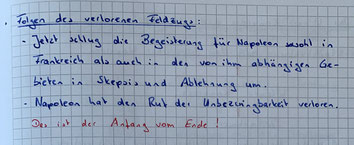 Folgen des verlorenen Feldzugs:
- Jetzt schlug die Begeisterung für Napoleon sowohl in
Frankreich als auch in den von ihm abhängigen Ge-
bieten in Skepsis und Ablehnung um.
- Napoleon hat den Ruf der Unbezwingbarkeit verloren.
Das ist der Anfang vom Ende!